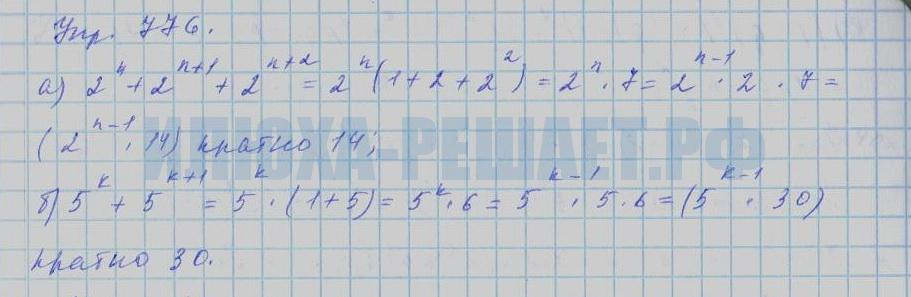 Упр. 776.
а) 2^n + 2^{n+1} + 2^{n+2} = 2^n (1 + 2 + 2^2) = 2^n · 7 = 2^{n-1} · 2 · 7 =
(2^{n-1} · 14) кратно 14;
ИЛЮХА-РЕШАЕТ.РФ
б) 5^k + 5^{k+1} = 5^k · (1+5) = 5^k · 6 = 5^{k-1} · 5 · 6 = (5^{k-1} · 30)
кратно 30.